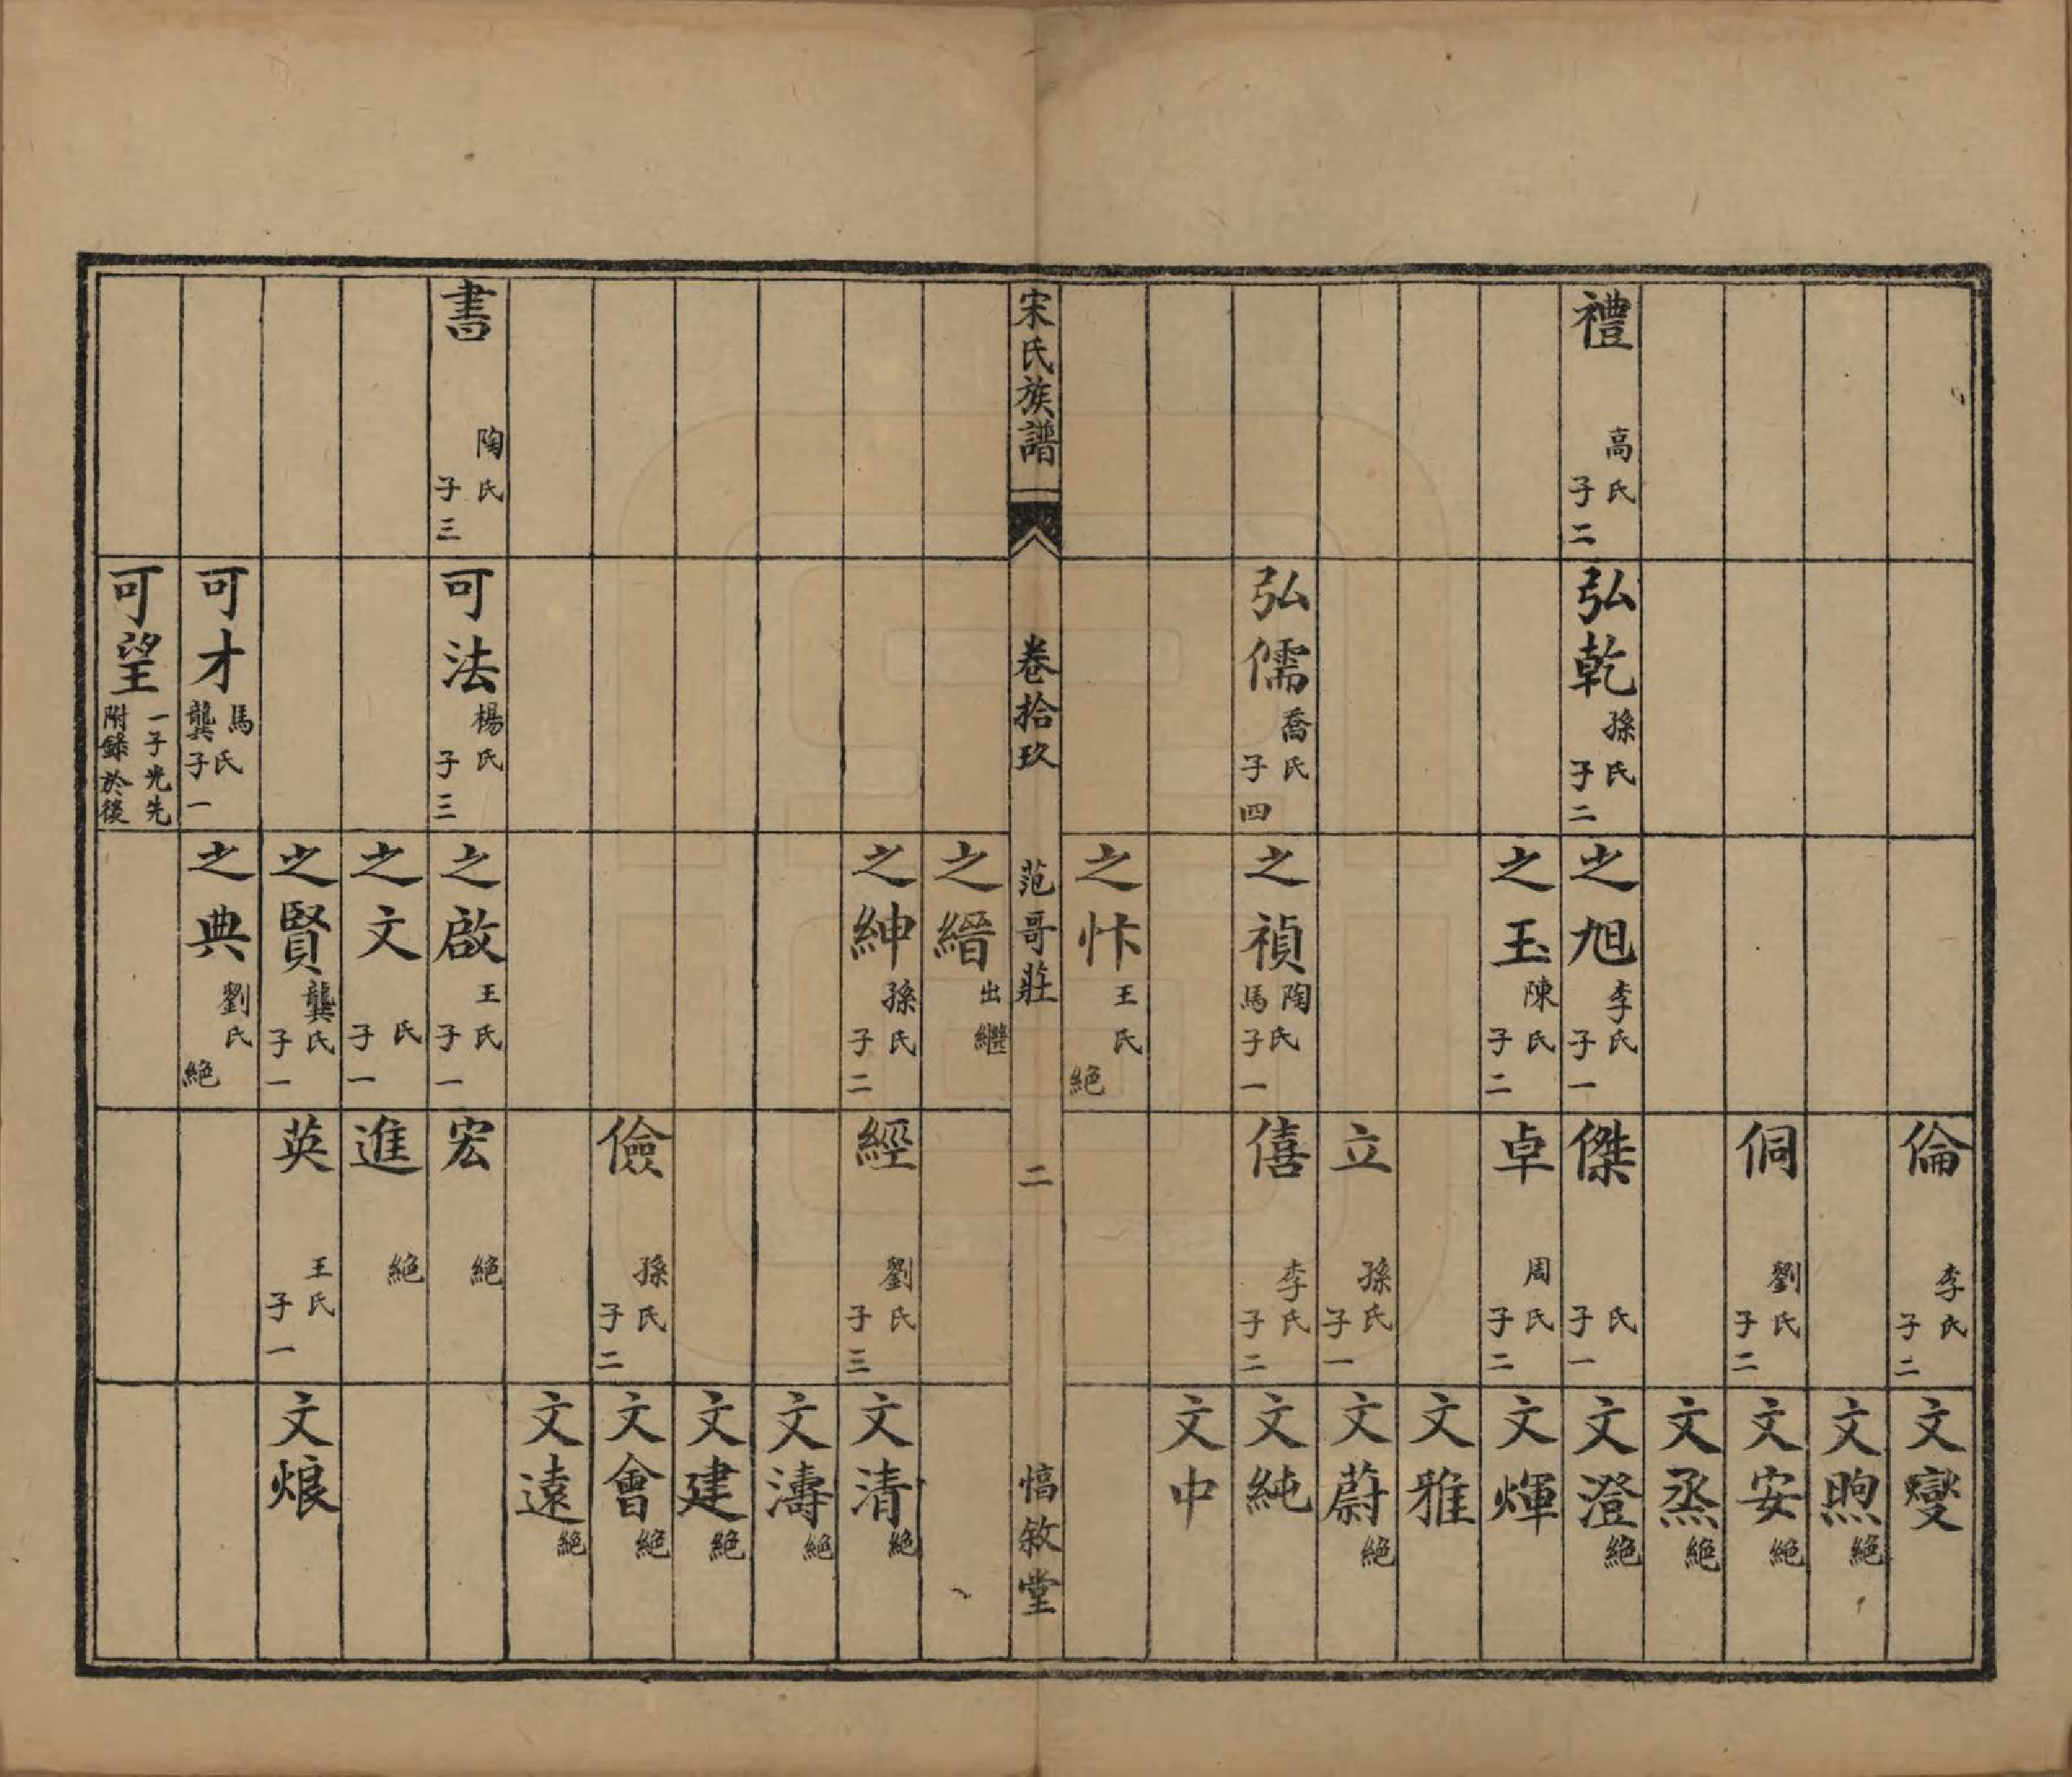 倫 李氏 子二
文燮
文煦 絶
侗 劉氏 子二
文安 絶
文烝 絶
禮 高氏 子二
弘乾 孫氏 子二
之旭 李氏 子一
傑 氏 子一
文澄 絶
之玉 陳氏 子二
卓 周氏 子二
文煇
文雅
立 孫氏 子一
文蔚 絶
弘儒 喬氏 子四
之禎 陶氏 馬 子一
僖 李氏 子二
文純
文中
之忭 王氏 絶
宋氏族譜 卷拾玖 范哥莊 二 愊敘堂
之縉 出繼
之紳 孫氏 子二
經 劉氏 子三
文清 絶
文濤 絶
文建 絶
儉 孫氏 子二
文會 絶
文遠 絶
書 陶氏 子三
可法 楊氏 子三
之啟 王氏 子一
宏 絶
之文 氏 子一
進 絶
之賢 龔氏 子一
英 王氏 子一
文烺
可才 馬氏 龔 子一
之典 劉氏 絶
可望 一子光先 附錄於後